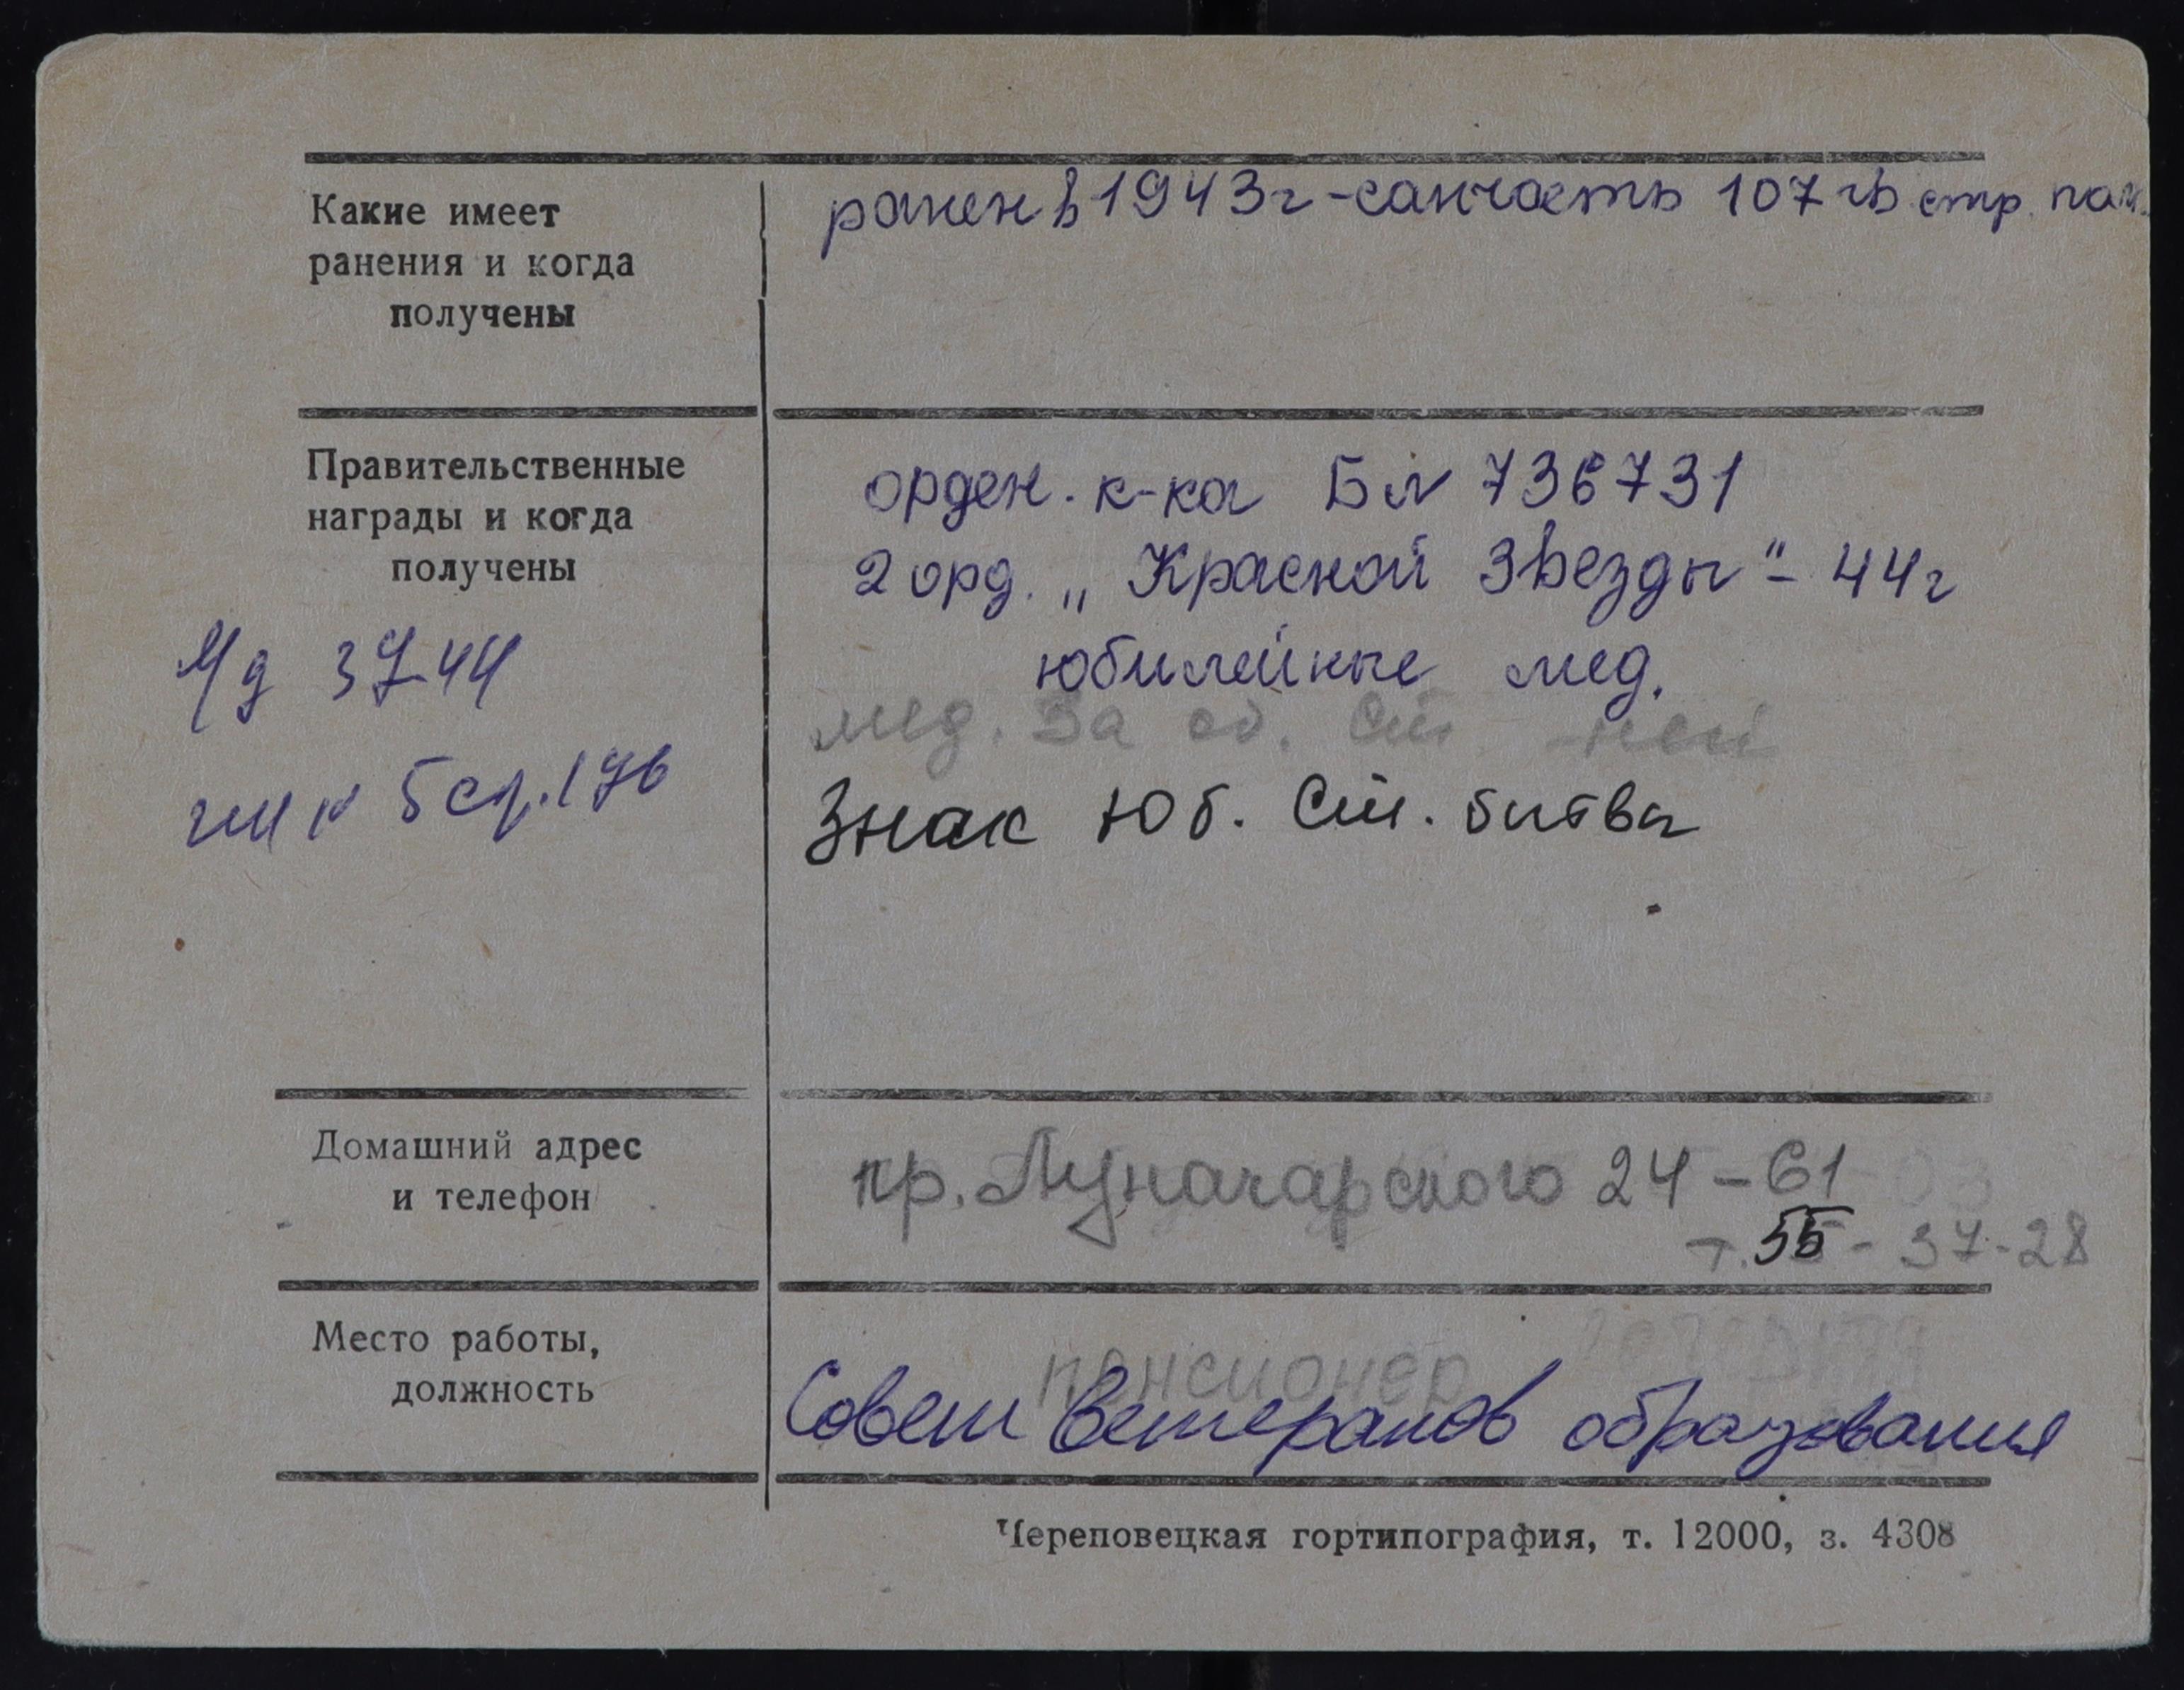 Какие имеет
ранения и когда
получены
ранен в 1943г - санчасть 107 гв стр. пол.
Правительственные
награды и когда
получены
орден. к-ка Б № 736731
2 орд. „Красной Звезды" - 44г
юбилейные мед.
мед. За об. Ст.
Знак Юб. Ст. битва
У/д 3744
5 стр. 176
Домашний адрес
и телефон
пр. Луначарского 24-61
т. 55-37-28
Место работы,
должность
пенсионер
Совет ветеранов образования
Череповецкая гортипография, т. 12000, з. 4308